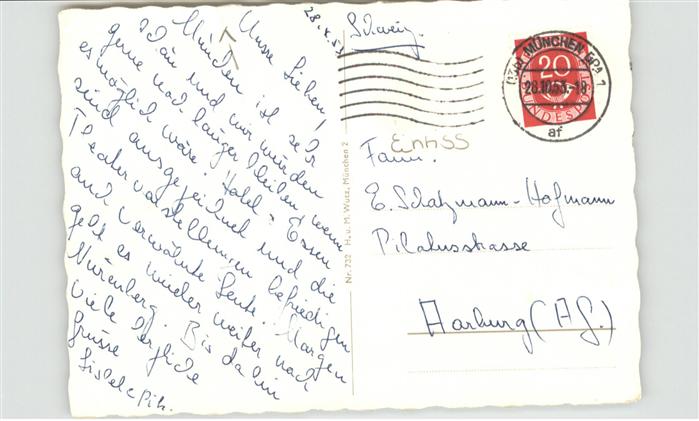 28.X.53
Unsre Lieben!
München ist sehr
schön und wir würden
gerne noch länger bleiben, wenn
es möglich wäre. Hotel - Essen
sind ausgezeichnet und die
Theatervorstellungen befriedigen
auch verwöhnte Leute. Morgen
geht es wieder weiter nach
Nürenberg. Bis dahin
viele herzliche
Grüsse
Nr. 732 H. u. M. Wutz, München 2
Schweiz
(13b) MÜNCHEN BPA 1
28.10.53.-18
af
20
BUNDESPOST
Fam.
E. Schatzmann-Hofmann
Pilatusstrasse
Aarburg (AG.)